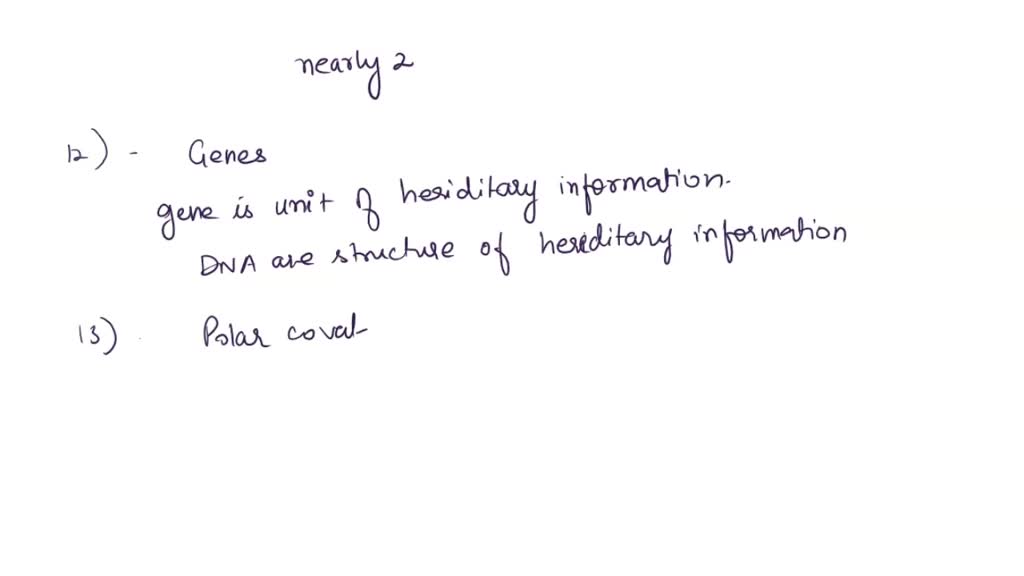 nearly 2
12) - Genes
gene is unit of hesiditary information.
DNA are structure of hereditary information
13) Polar coval